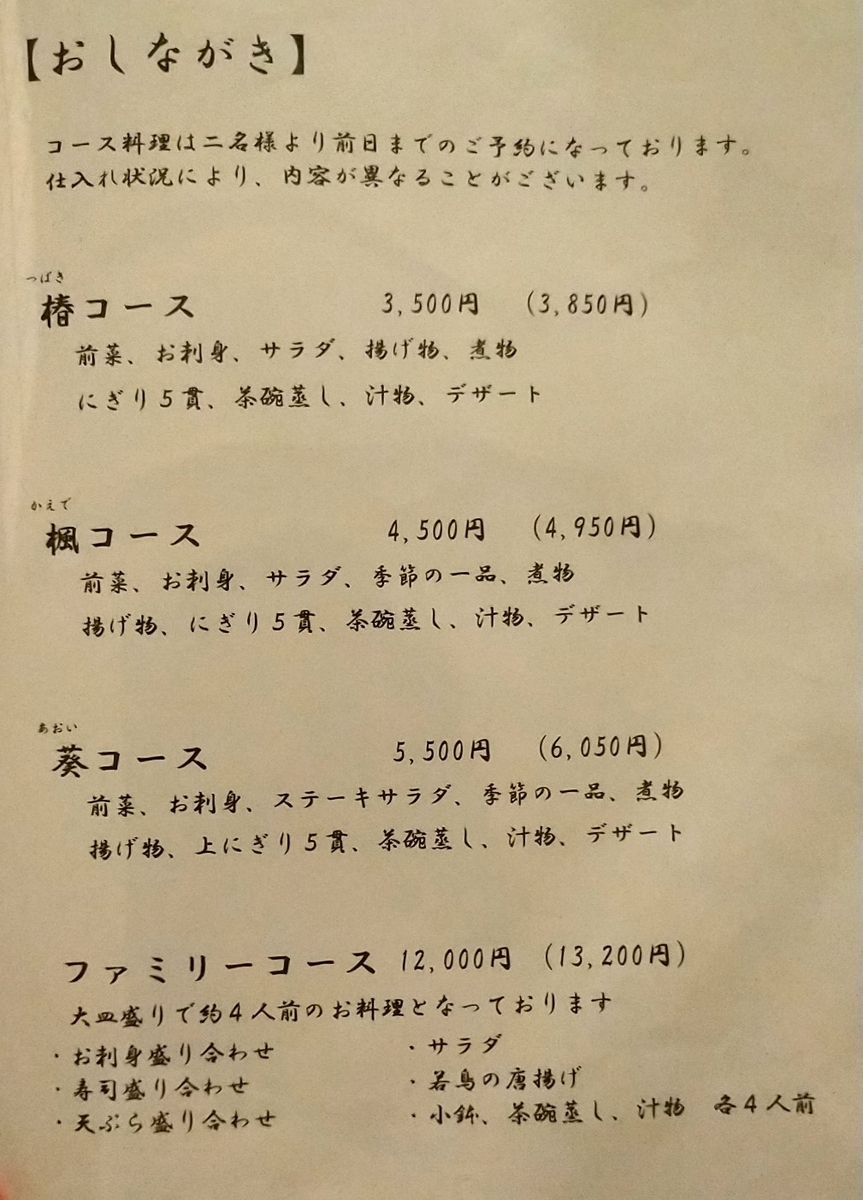 【おしながき】
コース料理は二名様より前日までのご予約になっております。
仕入れ状況により、内容が異なることがございます。
つばき
椿コース 3,500円 (3,850円)
前菜、お刺身、サラダ、揚げ物、煮物
にぎり5貫、茶碗蒸し、汁物、デザート
かえで
楓コース 4,500円 (4,950円)
前菜、お刺身、サラダ、季節の一品、煮物
揚げ物、にぎり5貫、茶碗蒸し、汁物、デザート
あおい
葵コース 5,500円 (6,050円)
前菜、お刺身、ステーキサラダ、季節の一品、煮物
揚げ物、上にぎり5貫、茶碗蒸し、汁物、デザート
ファミリーコース 12,000円 (13,200円)
大皿盛りで約4人前のお料理となっております
・お刺身盛り合わせ ・サラダ
・寿司盛り合わせ ・若鳥の唐揚げ
・天ぷら盛り合わせ ・小鉢、茶碗蒸し、汁物 各4人前